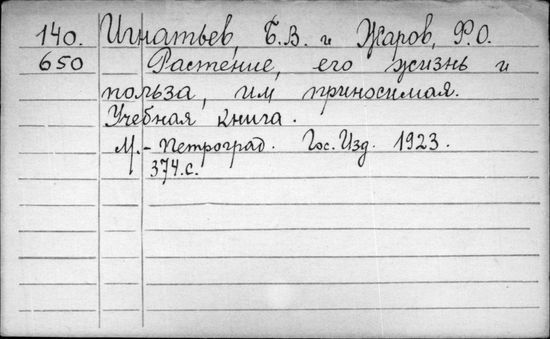 140. Игнатьев, Б.В. и Жаров, Р.О.
650 Растение, его жизнь и
польза, им приносимая.
Учебная книга.
М.-Петроград. Гос. Изд. 1923.
374.с.